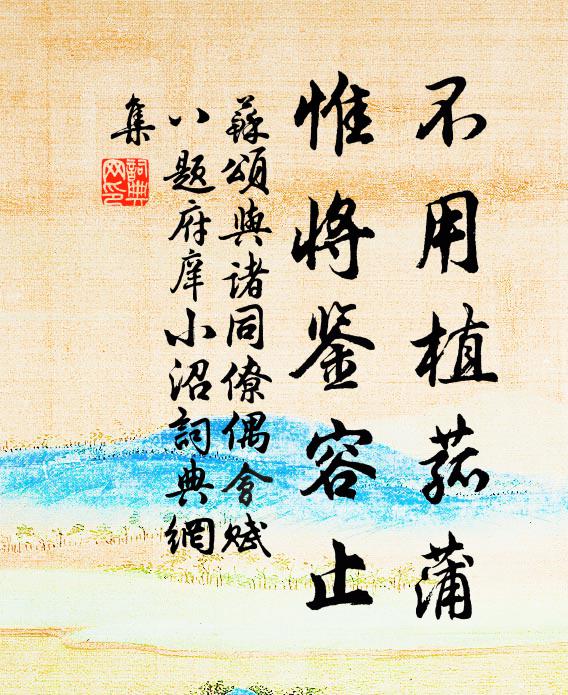 不用植菰蒲
惟將鉴容止
蘇頌與诸同僚偶會赋
八题府庠小沼詞典網
集
詞典网印